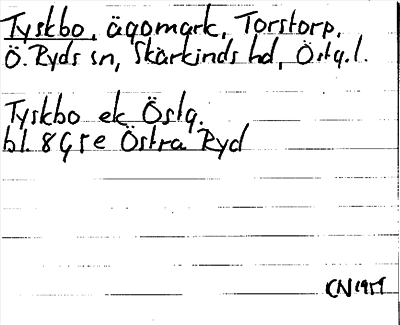 Tyskbo, ägomark, Torstorp,
Ö. Ryds sn, Skärkinds hd, Östg. l.
Tyskbo ek Östg.
bl. 8G5e Östra Ryd